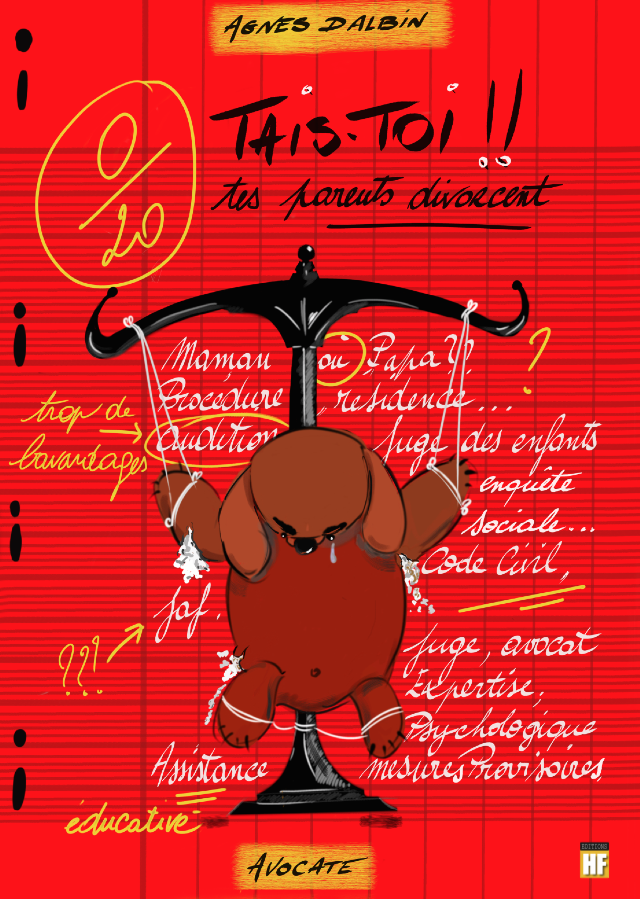 AGNES DALBIN
TAIS-TOI !!
tes parents divorcent
0/20
Maman ou Papa ??
?
Procédure, résidence...
trop de
bavardages
audition
Juge des enfants
enquête
sociale...
Code Civil,
Jaf.
???
Juge, avocat
Expertise,
Psychologique
Assistance
mesures Provisoires
éducative
AVOCATE
EDITIONS
HF